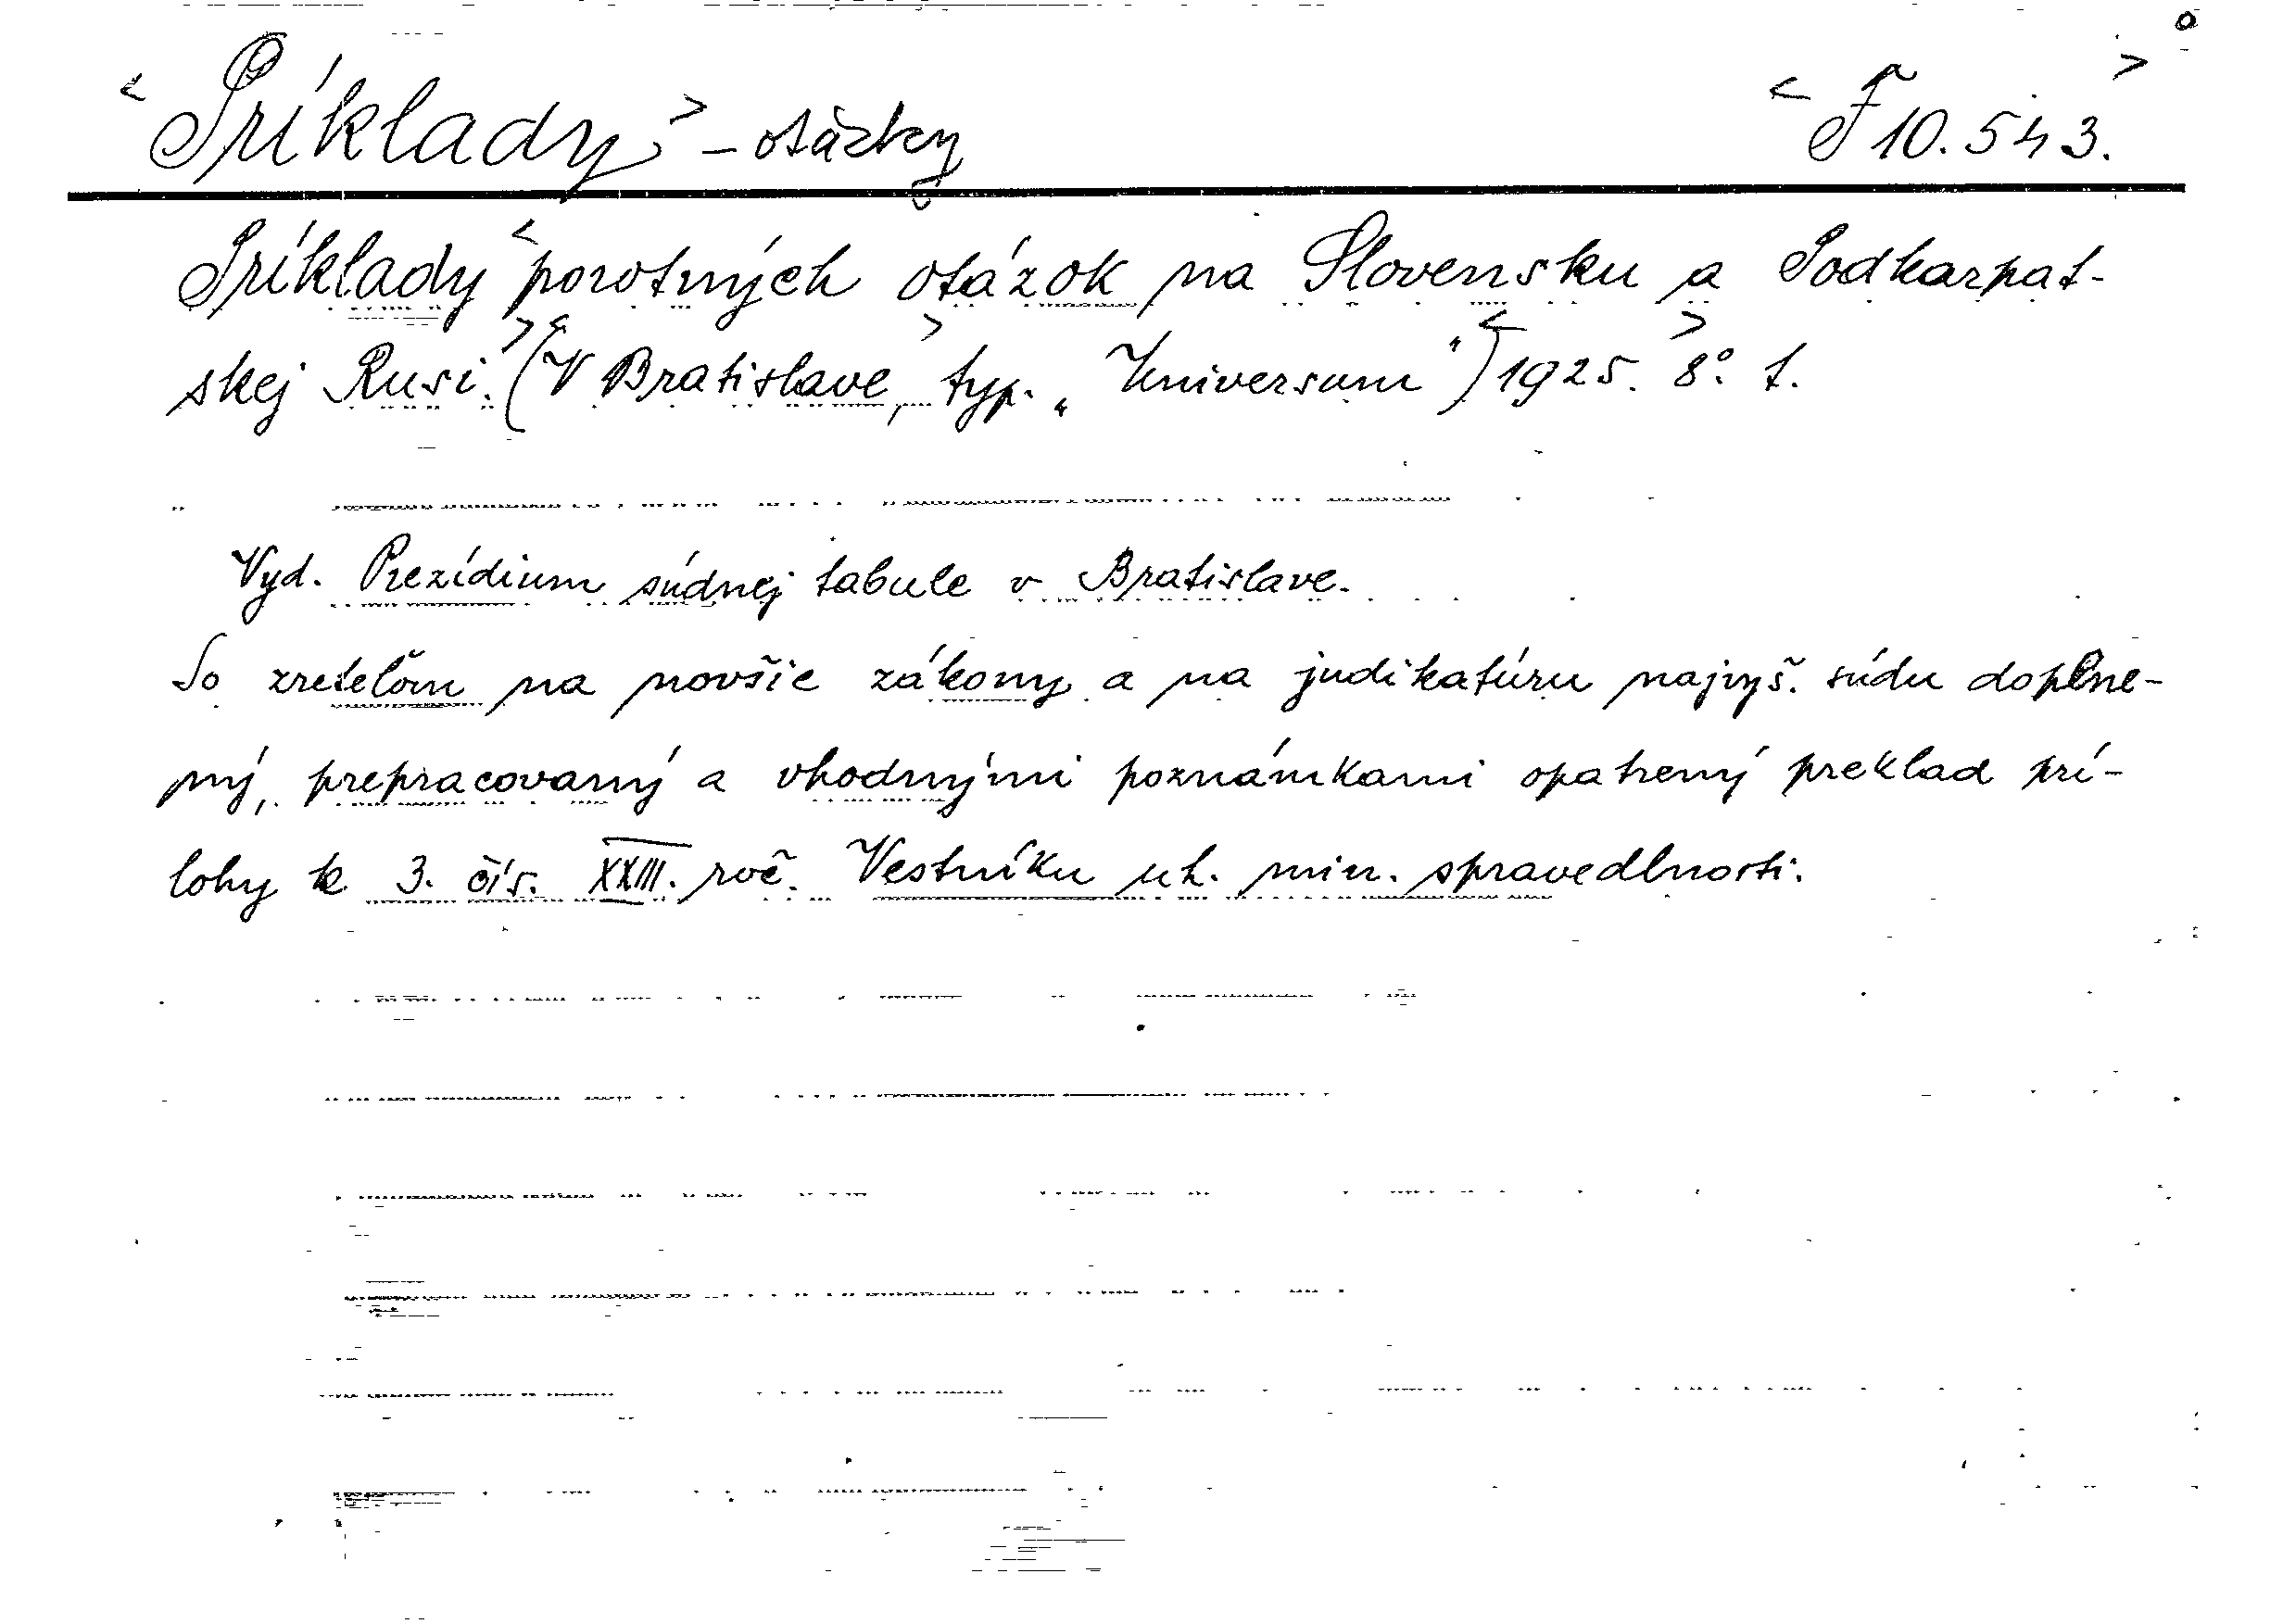 <Príklady> - otázky <F 10.543.>
Príklady <porotných otázok na Slovensku a Podkarpat-
skej Rusi.> (<V Bratislave,> typ. „Universum") <1925.> 8° t.
Vyd. Prezídium súdnej tabule v Bratislave.
So zreteľom na novšie zákony a na judikatúru najvyš. súdu doplne-
ný, prepracovaný a vhodnými poznámkami opatrený preklad prí-
lohy k 3. čís. XXIII. roč. Vestníku uh. min. spravedlnosti.